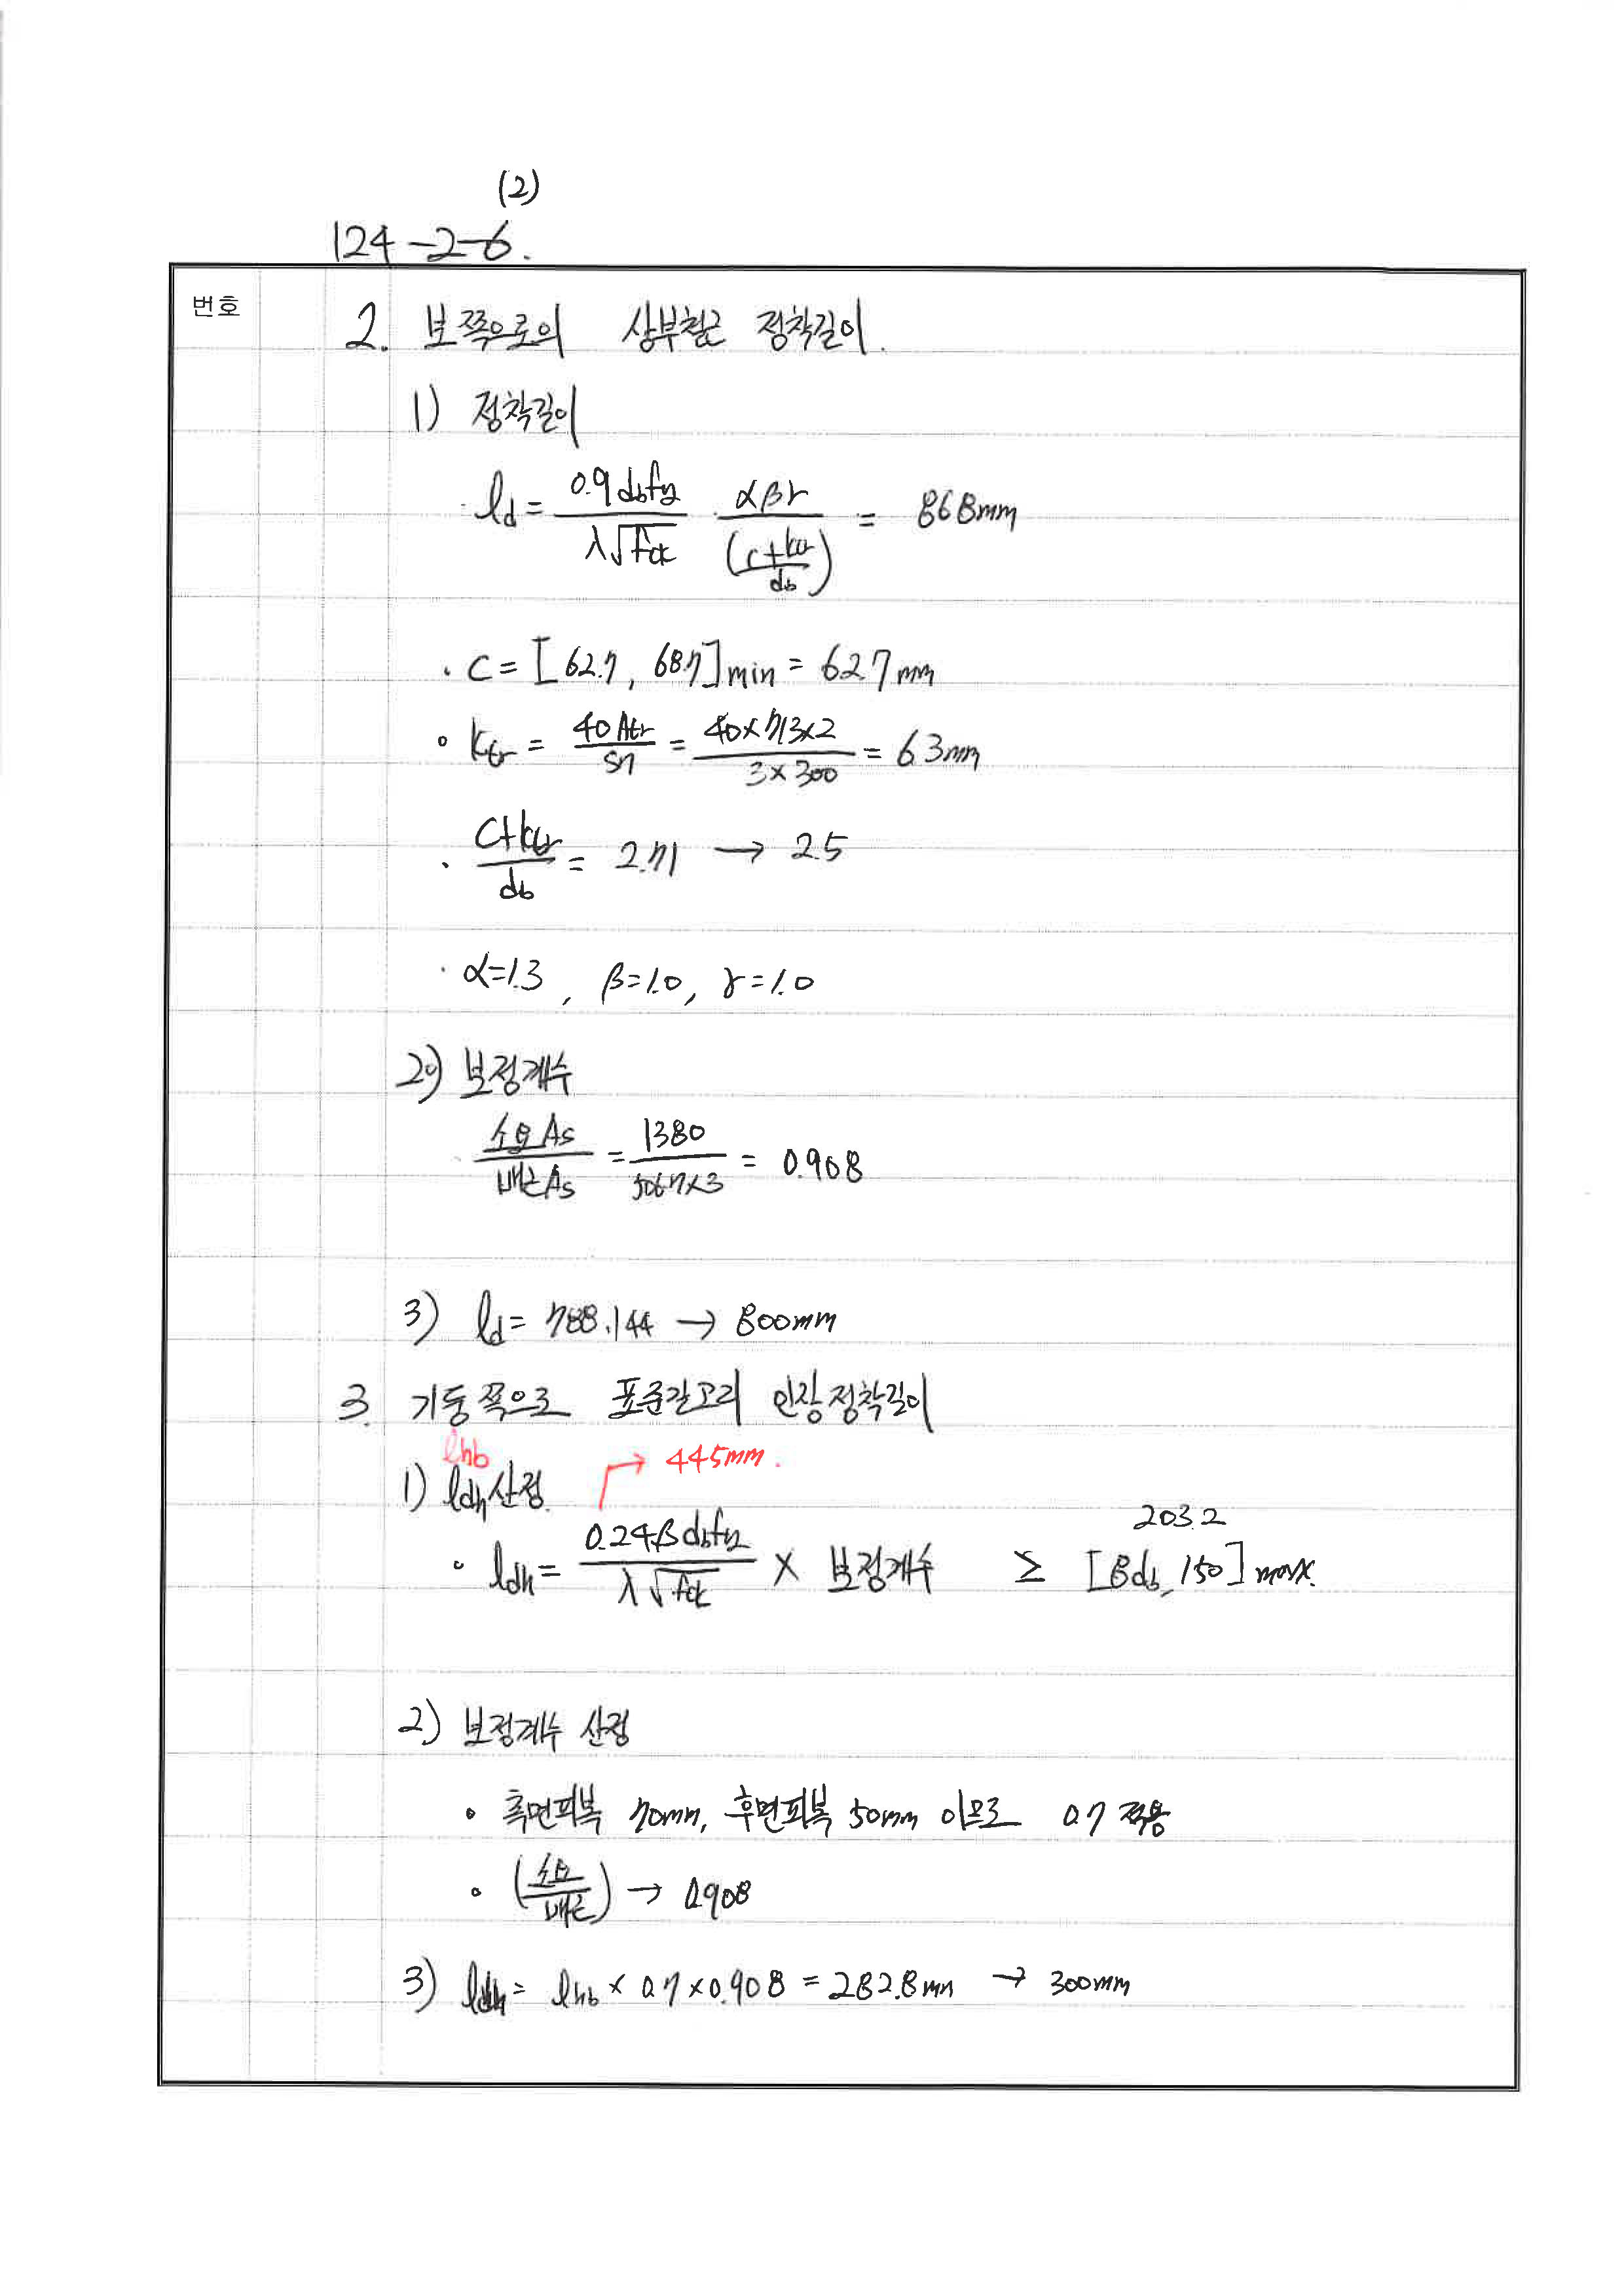 (2)
124-2-6.
번호
2. 보 쪽으로의 상부철근 정착길이.
1) 정착길이
· ld = 0.9dbfy / λ√fck · αβγ / ((c+ktr)/db) = 868mm
· C = [62.7, 68.7]min = 62.7mm
· Ktr = 40Atr / sn = 40×71.3×2 / 3×300 = 6.3mm
· C+ktr / db = 2.71 → 2.5
· α=1.3, β=1.0, γ=1.0
2) 보정계수
소요As / 배근As = 1380 / 506.7×3 = 0.908
3) ld = 788.144 → 800mm
3. 기둥 쪽으로 표준갈고리 인장정착길이
lhb → 445mm.
1) ldh 산정.
203.2
· ldh = 0.24βdbfy / λ√fck × 보정계수 ≥ [8db, 150]max.
2) 보정계수 산정
· 측면피복 70mm, 후면피복 50mm 이므로 0.7 적용
· (소요/배근) → 0.908
3) ldh = lhb × 0.7 × 0.908 = 282.8mm → 300mm